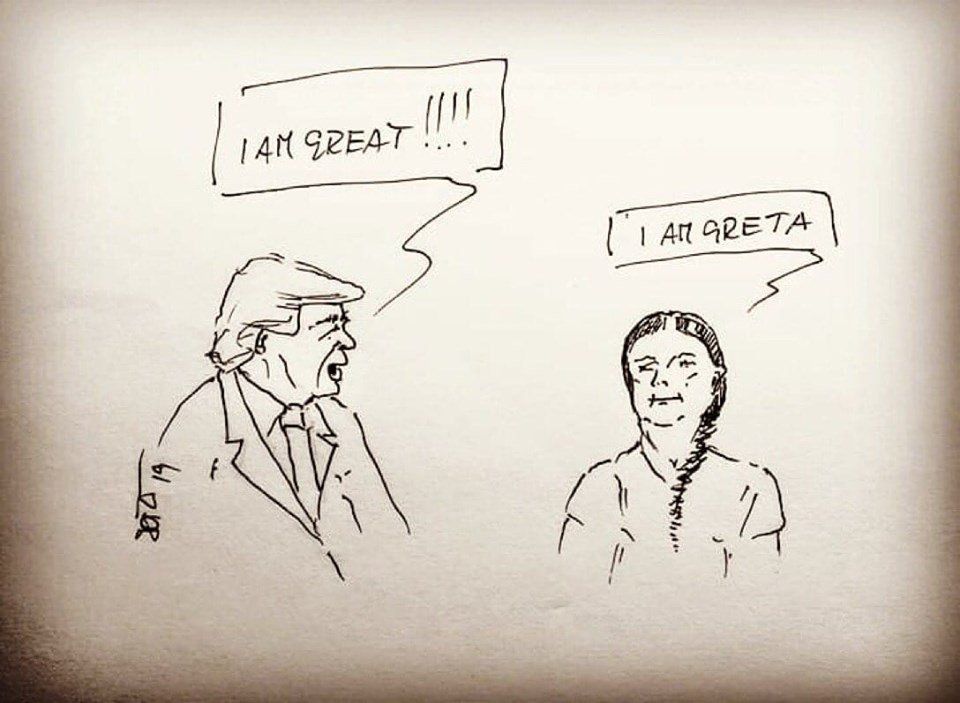 I AM GREAT !!!!
I AM GRETA
19